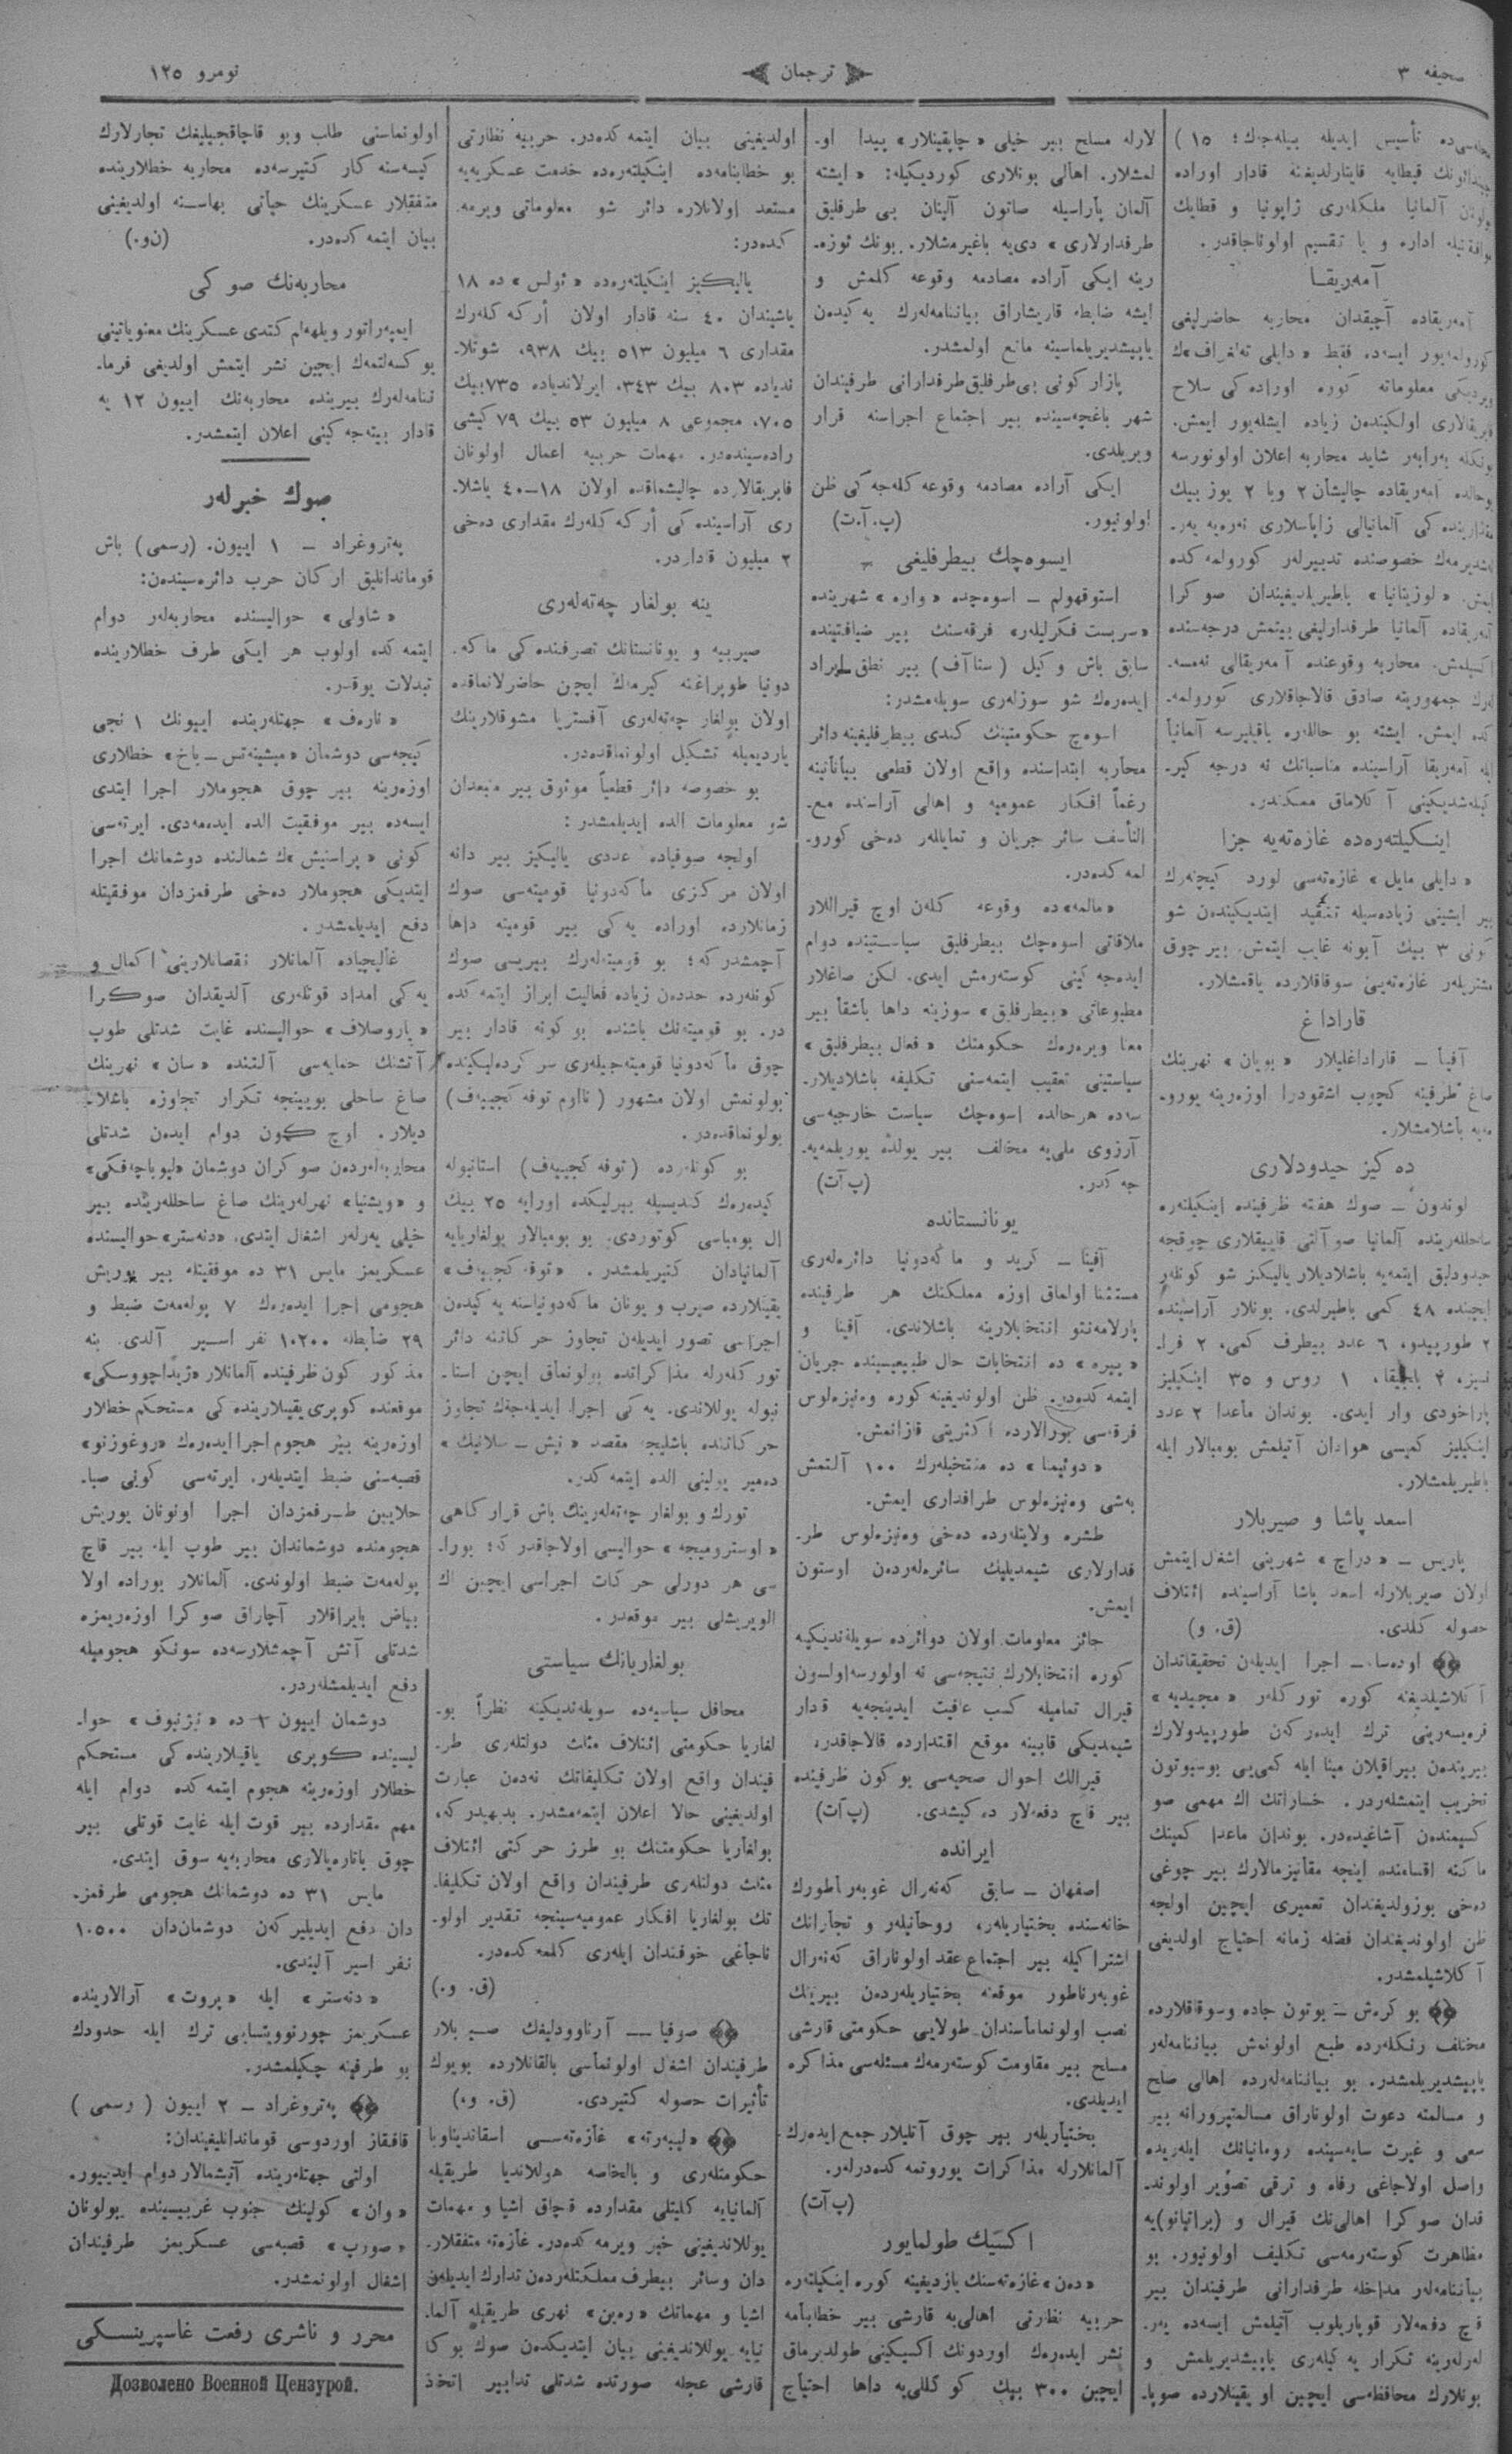 صحیفه ٣
ترجمان
نومرو ١٢٥
تأسیس ایدیله بیله‌جك؛ ١٥ )
قیطایه قایتارلدیغنه قادار اوراده
آلمانیا ملكلری ژاپونیا و قطایك
اداره و یا تقسیم اولوناجاقدر.
آمه‌ریقا
آمه‌ریقاده آچیقدان محاربه حاضرلیغی
ایسه‌ده فقط « دایلی ته‌لغراف »ك
ویردیكی معلوماته كوره اوراده كی سلاح
فابریقالاری اولكیندن زیاده ایشله‌یور ایمش.
بونكله به‌رابه‌ر شاید محاربه اعلان اولونورسه
بوحالده آمه‌ریقاده چالیشان ٢ ویا ٢ یوز بیك
مقدارینده كی آلمانیالی زاپاسلاری نه‌ره‌یه یه‌ر-
لشدیرمه‌ك خصوصنده تدبیرلر كورولمه كده
ایمش. « لوزیتانیا » باطیریلدیغیندان صوكرا
آمه‌ریقاده آلمانیا طرفدارلیغی بیتمش درجه‌سنده
اكسیلمش. محاربه وقوعنده آمه‌ریقالی نه‌مسه-
لرك جمهوریته صادق قالاجاقلاری كورولمه-
كده ایمش. ایشته بو حاللره باقیلیرسه آلمانیا
ایله آمه‌ریقا آراسینده مناسباتك نه درجه كیر-
كیله‌شدیكینی آكلاماق ممكندر.
اینكیلته‌ره‌ده غازه‌ته‌یه جزا
« دایلی مایل » غازه‌ته‌سی لورد كیچنه‌رك
بیر ایشینی زیاده‌سیله تنقید ایتدیكیندن شو
كونی ٣ بیك آبونه غایب ایتمش. بیر چوق
مشتریلر غازه‌ته‌یی سوقاقلارده یاقمشلار.
قاراداغ
آفینا – قاراداغلیلار « بویان » نهرینك
صاغ طرفینه كچوب اشقودرا اوزه‌رینه یورو-
مه‌یه باشلامشلار.
ده كیز حیدودلاری
لوندون – صوك هفته ظرفینده اینكیلته‌ره
ساحللرینده آلمانیا صو آلتی قاییقلاری چوقجه
حیدودلیق ایتمه‌یه باشلادیلار یالیكز شو كونلر
ایچینده ٤٨ كمی باطیرلدی. بونلار آراسینده
٢ طورپیدو، ٦ عدد بیطرف كمی، ٢ فرا-
نسیز، ٢ بلجیقا، ١ روس و ٣٥ اینكیلیز
پاراخودی وار ایدی. بوندان ماعدا ٢ عدد
اینكیلیز كمیسی هوادان آتیلمش بومبالار ایله
باطیریلمشلار.
اسعد پاشا و صیربلار
پاریس – « دراچ » شهرینی اشغال ایتمش
اولان صیربلارله اسعد پاشا آراسینده ائتلاف
حصوله كلدی. (ق. و)
اوده‌سا – اجرا ایدیلن تحقیقاتدان
آكلاشیلدیغنه كوره توركلر « مجیدیه »
قره‌یسه‌رینی ترك ایدركن طورپیدولارك
بیریندن بیراقیلان مینا ایله كمی‌یی بوسبوتون
تخریب ایتمشلردر. خساراتك اك مهمی صو
كسیمندن آشاغیده‌در. بوندان ماعدا كمینك
ماكنه اقسامنده اینجه مقانیزمالارك بیر چوغی
دخی بوزولدیغندان تعمیری ایچین اولجه
ظن اولوندیغندان فضله زمانه احتیاج اولدیغی
آكلاشیلمشدر.
بو كره‌ش – بوتون جاده وسوقاقلارده
مختلف رنكلرده طبع اولونمش بیاننامه‌لر
یاپیشدیریلمشدر. بو بیاننامه‌لرده اهالی صلح
و مسالمته دعوت اولوناراق مسالمتپرورانه بیر
سعی و غیرت سایه‌سینده رومانیانك ایلریده
واصل اولاجاغی رفاه و ترقی تصویر اولوند-
قدان صوكرا اهالی‌نك قیرال و (براتیانو)یه
مظاهرت كوسترمه‌سی تكلیف اولونیور. بو
بیاننامه‌لر مداخله طرفدارانی طرفیندان بیر
قچ دفعه‌لار قوپاریلوب آتیلمش ایسه‌ده یه‌ر-
لرلرینه تكرار یه كیلری یاپیشدیریلمش و
بونلارك محافظه‌سی ایچین او یقینلارده صوپا-
لارله مسلح بیر خیلی « چاپقینلار » پیدا او-
لمشلار. اهالی بونلاری كوردیكیله: « ایشته
آلمان پاراسیله صاتون آلینان بی طرفلیق
طرفدارلاری » دی‌یه باغیرمشلار. بونك ئوزه-
رینه ایكی آراده مصادمه وقوعه كلمش و
ایشه ضابطه قاریشاراق بیاننامه‌لرك یه كیدن
یاپیشدیریلماسینه مانع اولمشدر.
پازار كونی بی‌طرفلیق‌طرفدارانی طرفیندان
شهر باغچه‌سینده بیر اجتماع اجراسنه قرار
ویریلدی.
ایكی آراده مصادمه وقوعه كله‌جه كی ظن
اولونیور. (پ. آ.ت)
ایسوه‌چك بیطرفلیغی
استوقهولم – اسوه‌چده « واره » شهرینده
« سربست فكرلیلر » فرقه‌سنك بیر ضیافتینده
سابق باش وكیل ( ستاآف ) بیر نطق ایراد
ایده‌رك شو سوزلری سویله‌مشدر:
اسوه‌چ حكومتینك كندی بیطرفلیغینه دائر
محاربه ابتداسنده واقع اولان قطعی بیاناتینه
رغماً افكار عمومیه و اهالی آراسنده مع-
التأسف سائر جریان و تمایللر دخی كورو-
لمه كده‌در.
« مالمه »ده وقوعه كلن اوچ قیراللار
ملاقاتی اسوه‌چك بیطرفلیق سیاستینده دوام
ایده‌جه كینی كوسترمش ایدی. لكن صاغلار
مطبوعاتی « بیطرفلیق » سوزینه داها باشقا بیر
معنا ویره‌رك حكومتك « فعال بیطرفلیق »
سیاستینی تعقیب ایتمه‌سنی تكلیفه باشلادیلار.
سه‌ده هر حالده اسوه‌چك سیاست خارجیه‌سی
آرزوی ملی‌یه مخالف بیر یولده یوریلمه‌یه-
جه كدر. (پ آت)
یونانستانده
آفینا – كرید و ماكه‌دونیا دائره‌لری
مستثنا اولماق اوزه مملكتك هر طرفینده
پارلامه‌نتو انتخابلارینه باشلاندی. آفینا و
« پیره » ده انتخابات حال طبیعیسینده جریان
ایتمه كده‌در. ظن اولوندیغینه كوره وه‌نیزه‌لوس
فرقه‌سی بورالارده اكثریتی قازانمش.
« دوئیما » ده منتخبلرك ١٠٠ آلتمش
به‌شی وه‌نیزه‌لوس طرافداری ایمش.
طشره ولایتلرده دخی وه‌نیزه‌لوس طر-
فدارلاری شیمدیلیك سائره‌لردن اوستون
ایمش.
جائز معلومات اولان دوائرده سویلندیكیه
كوره انتخابلارك نتیجه‌سی نه اولورسه‌اولسون
قیرال تمامیله كسب عافیت ایدینجه‌یه قادار
شیمدیكی قابینه موقع اقتدارده قالاجاقدر.
قیرالك احوال صحیه‌سی بو كون ظرفینده
بیر قاچ دفعه‌لار ده كیشدی. (پ آت)
ایرانده
اصفهان – سابق كه‌نه‌رال غوبه‌رناطورك
خانه‌سنده بختیاریلر، روحانیلر و تجارانك
اشتراكیله بیر اجتماع عقد اولوناراق كه‌نه‌رال
غوبه‌رناطور موقعنه بختیاریلردن بیرینك
نصب اولونماماسندان طولایی حكومتی قارشی
مسلح بیر مقاومت كوسترمه‌ك مسئله‌سی مذاكره
ایدیلدی.
بختیاریلر بیر چوق آتلیلار جمع ایده‌رك
آلمانلارله مذاكرات یوروتمه كده‌درلر.
(پ آت)
اكسیك طولمایور
« ده‌ن » غازه‌ته‌سنك یازدیغینه كوره اینكیلته‌ره
حربیه نظارتی اهالی‌یه قارشی بیر خطابنامه
نشر ایده‌رك اوردونك اكسیكینی طولدیرماق
ایچین ٣٠٠ بیك كوكللی‌یه داها احتیاج
اولدیغینی بیان ایتمه كده‌در. حربیه نظارتی
بو خطابنامه‌ده اینكیلته‌ره‌ده خدمت عسكریه‌یه
مستعد اولانلاره دائر شو معلوماتی ویرمه-
كده‌در:
یالیكیز اینكیلته‌ره‌ده « ئولس » ده ١٨
یاشیندان ٤٠ سنه قادار اولان أركه كلرك
مقداری ٦ میلیون ٥١٣ بیك ٩٣٨، شوتلا-
ندیاده ٨٠٣ بیك ٣٤٣، ایرلاندیاده ٧٣٥بیك
٧٠٥، مجموعی ٨ میلیون ٥٣ بیك ٧٩ كیشی
راده‌سینده‌در. مهمات حربیه اعمال اولونان
فابریقالارده چالیشماقده اولان ١٨–٤٠ یاشلا-
ری آراسینده كی أركه كلرك مقداری دخی
٢ میلیون قاداردر.
ینه بولغار چه‌ته‌لری
صیربیه و یونانستانك تصرفنده كی ماكه-
دونیا طوپراغنه كیرمه‌ك ایچین حاضرلانماقده
اولان بولغار چه‌ته‌لری آفستریا مشوقلارینك
یاردیمیله تشكیل اولونماقده‌در.
بو خصوصه دائر قطعیاً موثوق بیر منبعدان
شو معلومات الده ایدیلمشدر:
اولجه صوفیاده عددی یالیكیز بیر دانه
اولان مركزی ماكه‌دونیا قومیته‌سی صوك
زمانلارده اوراده یه كی بیر قومیته داها
آچمشدركه؛ بو قومیته‌لرك بیریسی صوك
كونلرده حددن زیاده فعالیت ابراز ایتمه كده
در. بو قومیته‌نك باشنده بو كونه قادار بیر
چوق ماكه‌دونیا قومیته‌جیلری سركرده‌لیكینده
بولونمش اولان مشهور ( نااوم توفه كجییه‌ف )
بولونماقده‌در.
بو كونلرده (توفه كجییه‌ف) استانبوله
كیده‌رك كندیسیله بیرلیكده اورایه ٢٥ بیك
ال بومباسی كوتوردی. بو بومبالار بولغاریایه
آلمانیادان كتیریلمشدر. « توفه كجییه‌ف »
یقینلارده صیرب و یونان ماكه‌دونیاسنه یه كیدن
اجراسی تصور ایدیلن تجاوز حركاتنه دائر
توركلرله مذاكراتده بولونماق ایچین استا-
نبوله یوللاندی. یه كی اجرا ایدیله‌جه‌ك تجاوز
حركاتنده باشلیجا مقصد « نیش – سلانیك »
ده‌میر یولینی الده ایتمه كدر.
تورك و بولغار چه‌ته‌لرینك باش قراركاهی
« اوسترومیجه » حوالیسی اولاجاقدر كه؛ بورا-
سی هر دورلی حركات اجراسی ایچین اك
الویریشلی بیر موقعدر.
بولغاریانك سیاستی
محافل سیاسیه‌ده سویلندیكینه نظراً بو-
لغاریا حكومتی ائتلاف مثلث دولتلری طر-
فیندان واقع اولان تكلیفاتك نه‌دن عبارت
اولدیغینی حالا اعلان ایتمه‌مشدر. بدیهیدركه،
بولغاریا حكومتنك بو طرز حركتی ائتلاف
مثلث دولتلری طرفیندان واقع اولان تكلیفا-
تك بولغاریا افكار عمومیه‌سینجه تقدیر اولو-
ناجاغی خوفندان ایلری كلمه كده‌در.
(ق. و.)
صوفیا — آرناوودلیغك صیربلار
طرفیندان اشغال اولونماسی بالقانلارده بویوك
تأثیرات حصوله كتیردی. (ق. و.)
« لیبه‌رته » غازه‌ته‌سی اسقاندیناویا
حكومتلری و بالخاصه هوللاندیا طریقیله
آلمانیایه كلیتلی مقدارده قچاق اشیا و مهمات
یوللاندیغینی خبر ویرمه كده‌در. غازه‌ته متفقلار-
دان وسائر بیطرف مملكتلردن تدارك ایدیلن
اشیا و مهماتك « ره‌ین » نهری طریقیله آلما-
نیایه یوللاندیغینی بیان ایتدیكدن صوك بوكا
قارشی عجله صورتده شدتلی تدابیر اتخذ
اولونماسنی طلب وبو قاچاقجیلیغك تجارلارك
كیسه‌سنه كار كتیرسه‌ده محاربه خطلارینده
متفقلار عسكرینك حیاتی بهاسنه اولدیغینی
بیان ایتمه كده‌در. (ن.و.)
محاربه‌نك صوكی
ایمپه‌راتور ویلهه‌لم كندی عسكرینك معنویاتینی
یوكسلتمه‌ك ایچین نشر ایتمش اولدیغی فرما-
ننامه‌لرك بیرینده محاربه‌نك اییون ١٢ یه
قادار بیته‌جه كینی اعلان ایتمشدر.
صوك خبرلر
په‌تروغراد – ١ اییون. (رسمی) باش
قوماندانلیق اركان حرب دائره‌سیندن:
« شاولی » حوالیسنده محاربه‌لر دوام
ایتمه كده اولوب هر ایكی طرف خطلارینده
تبدلات یوقدر.
« ناره‌ف » جهتلرینده اییونك ١ نجی
كیجه‌سی دوشمان « میشینه‌تس – باخ » خطلاری
اوزه‌رینه بیر چوق هجوملار اجرا ایتدی
ایسه‌ده بیر موفقیت الده ایده‌مه‌دی. ایرته‌سی
كونی « پراسنیش »ك شمالنده دوشمانك اجرا
ایتدیكی هجوملار دخی طرفمزدان موفقیتله
دفع ایدیلمشدر.
غالیچیاده آلمانلار نقصانلارینی اكمال و
یه كی امداد قوتلری آلدیقدان صوكرا
« یاروصلاف » حوالیسنده غایت شدتلی طوپ
آتشنك حمایه‌سی آلتنده « سان » نهرینك
صاغ ساحلی بویینجه تكرار تجاوزه باشلا-
دیلار. اوچ كون دوام ایدن شدتلی
محاربه‌لردن صوكران دوشمان « لیوباچه‌فكی »
و « ویشنیا » نهرلرینك صاغ ساحللرینده بیر
خیلی یه‌رلر اشغال ایتدی. « دنه‌ستر » حوالیسنده
عسكریمز مایس ٣١ ده موفقیتله بیر یوریش
هجومی اجرا ایده‌رك ٧ پوله‌مه‌ت ضبط و
٢٩ ضابطله ١٠٢٠٠ نفر اسیر آلدی. ینه
مذكور كون ظرفینده آلمانلار « ژیداچووسكی »
موقعنده كوپری یقینلارینده كی مستحكم خطلار
اوزه‌رینه بیر هجوم اجرا ایده‌رك « روغوزنو »
قصبه‌سنی ضبط ایتدیلر. ایرته‌سی كونی صبا-
حلایین طرفمزدان اجرا اولونان یوریش
هجومنده دوشماندان بیر طوپ ایله بیر قاچ
پوله‌مه‌ت ضبط اولوندی. آلمانلار بوراده اولا
بیاض بایراقلار آچاراق صوكرا اوزه‌ریمزه
شدتلی آتش آچمشلارسه‌ده سونكو هجومیله
دفع ایدیلمشلردر.
دوشمان اییون ١ ده « نیژنیوف » حوا-
لیسینده كوپری یاقیلارینده كی مستحكم
خطلار اوزه‌رینه هجوم ایتمه كده دوام ایله
مهم مقدارده بیر قوت ایله غایت قوتلی بیر
چوق باتاره‌یالاری محاربه‌یه سوق ایتدی.
مایس ٣١ ده دوشمانك هجومی طرفمز-
دان دفع ایدیلیركن دوشماندان ١٠٥٠٠
نفر اسیر آلیندی.
« دنه‌ستر » ایله « پروت » آرالارینده
عسكریمز چورنوویتسایی ترك ایله حدودك
بو طرفینه چكیلمشدر.
په‌تروغراد – ٢ اییون ( رسمی )
قافقاز اوردوسی قوماندانلیغیندان:
اولتی جهتلرینده آتیشمالار دوام ایدییور.
« وان » كولینك جنوب غربیسینده بولونان
« صورپ » قصبه‌سی عسكریمز طرفیندان
اشغال اولونمشدر.
محرر و ناشری رفعت غاسپرینسكی
Дозволено Военной Цензурой.